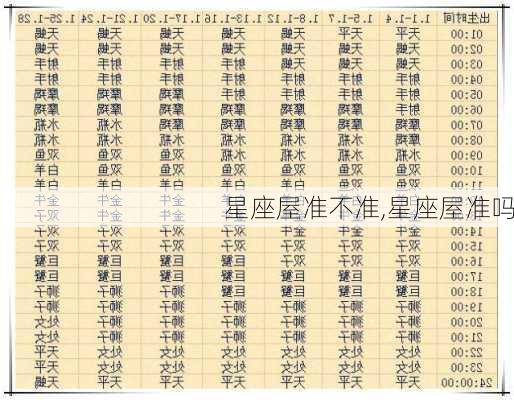 出生时间 1.1-1.4 1.5-1.7 1.8-1.12 1.13-1.16 1.17-1.20 1.21-1.24 1.25-1.28
01:00 天平 天平 天蝎 天蝎 天蝎 天蝎 天蝎
02:00 天蝎 天蝎 天蝎 天蝎 天蝎 天蝎 天蝎
03:00 天蝎 天蝎 天蝎 射手 射手 射手 射手
04:00 射手 射手 射手 射手 射手 射手 射手
05:00 射手 射手 射手 射手 摩羯 摩羯 摩羯
06:00 射手 摩羯 摩羯 摩羯 摩羯 摩羯 摩羯
07:00 摩羯 摩羯 摩羯 摩羯 水瓶 水瓶 水瓶
08:00 摩羯 水瓶 水瓶 水瓶 水瓶 水瓶 水瓶
09:00 水瓶 水瓶 水瓶 双鱼 双鱼 双鱼 双鱼
10:00 双鱼 双鱼 双鱼 双鱼 双鱼 双鱼 双鱼
11:00 双鱼 双鱼 白羊 白羊 白羊 白羊 白羊
星座屋准不准,星座屋准吗
14:00 金牛 金牛 金牛
15:00 双子 双子 双子 双子 双子 双子 双子
16:00 双子 双子 巨蟹 巨蟹 巨蟹
17:00 巨蟹 巨蟹 巨蟹 巨蟹 巨蟹 巨蟹 巨蟹
18:00 巨蟹 巨蟹 巨蟹 狮子 狮子 狮子
19:00 狮子 狮子 狮子 狮子 狮子 狮子 狮子
20:00 狮子 狮子 狮子 狮子 处女
21:00 狮子 处女 处女 处女 处女
22:00 处女 处女 处女 处女 处女 天平
23:00 处女 处女 处女 天平 天平
24:00:00 天平 天平 天平 天平 天平 天平 天蝎